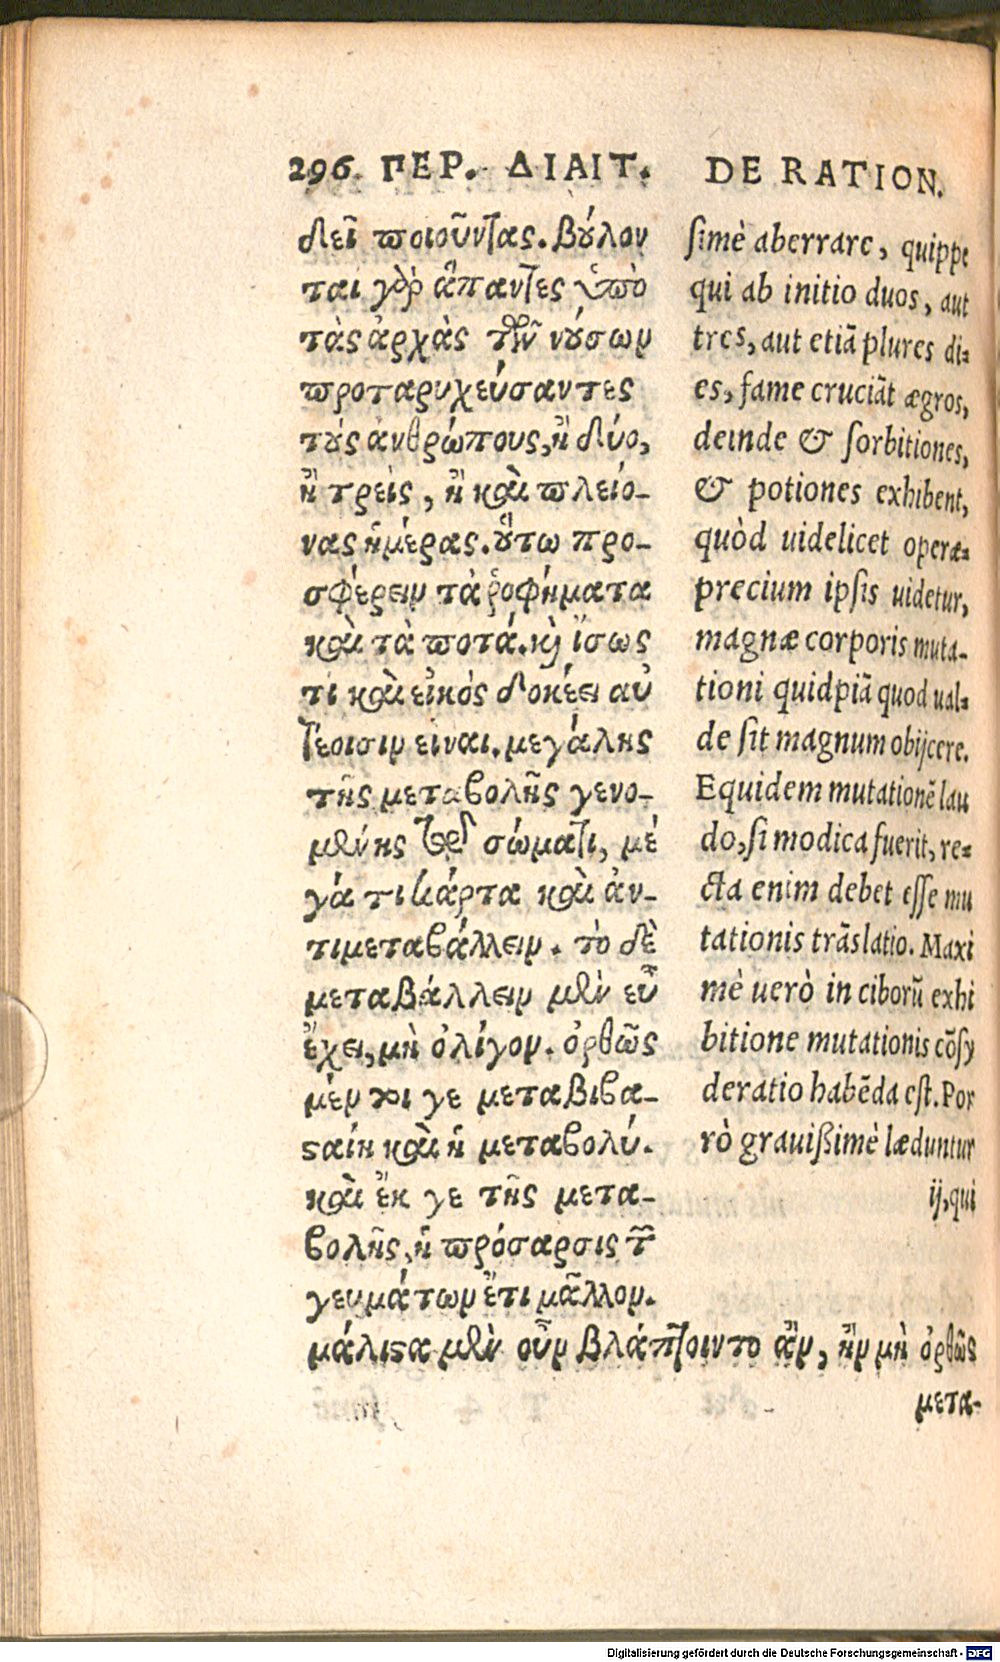 296. ΠΕΡ. ΔΙΑΙΤ.
δεῖ ποιοῦντας. βȣ́λον
ται γὸρ ἅπαντες ὑπὸ
τὰς ἀρχὰς τῶν νȣ́σων
προταρυχεύσαντες
τȣ̀ς ἀνθρώπους, ἢ δύο,
ἢ τρεῖς, ἢ καὶ πλείο-
νας ἡμέρας. ȣ̔́τω προ-
σφέρειν τὰ ῥοφήματα
καὶ τὰ ποτά. κὶ ἴσως
τὶ καὶ εἰκὸς δοκέει αὐ
τέοισιν εἶναι. μεγάλης
τῆς μεταβολῆς γενο-
μένης τῷ σώματι, μέ
γά τι κάρτα καὶ ἀν-
τιμεταβάλλειν. τὸ δὲ
μεταβάλλειν μὲν εὖ
ἔχει, μὴ ὀλίγον. ὀρθῶς
μέν τοι γε μεταβιβα-
ςαίη καὶ ἡ μεταβολή.
καὶ ἔκ γε τῆς μετα-
βολῆς, ἡ πρόσαρσις τ̃
γευμάτων ἔτι μᾶλλον.
μάλιςα μὲν οὖν βλάπτοιντο ἂν, ἢν μὴ ὀρθῶς
μετα-
DE RATION.
simè aberrare, quippe
qui ab initio duos, aut
tres, aut etiã plures di-
es, fame cruciãt ægros,
deinde & sorbitiones,
& potiones exhibent,
quòd uidelicet operæ-
precium ipsis uidetur,
magnæ corporis muta-
tioni quidpiã quod ual-
de sit magnum obijcere.
Equidem mutationẽ lau
do, si modica fuerit, re-
cta enim debet esse mu
tationis trãslatio. Maxi
mè uerò in ciborũ exhi
bitione mutationis cõsy
deratio habẽda est. Por
rò grauißimè læduntur
ij, qui
Digitalisierung gefördert durch die Deutsche Forschungsgemeinschaft - DFG